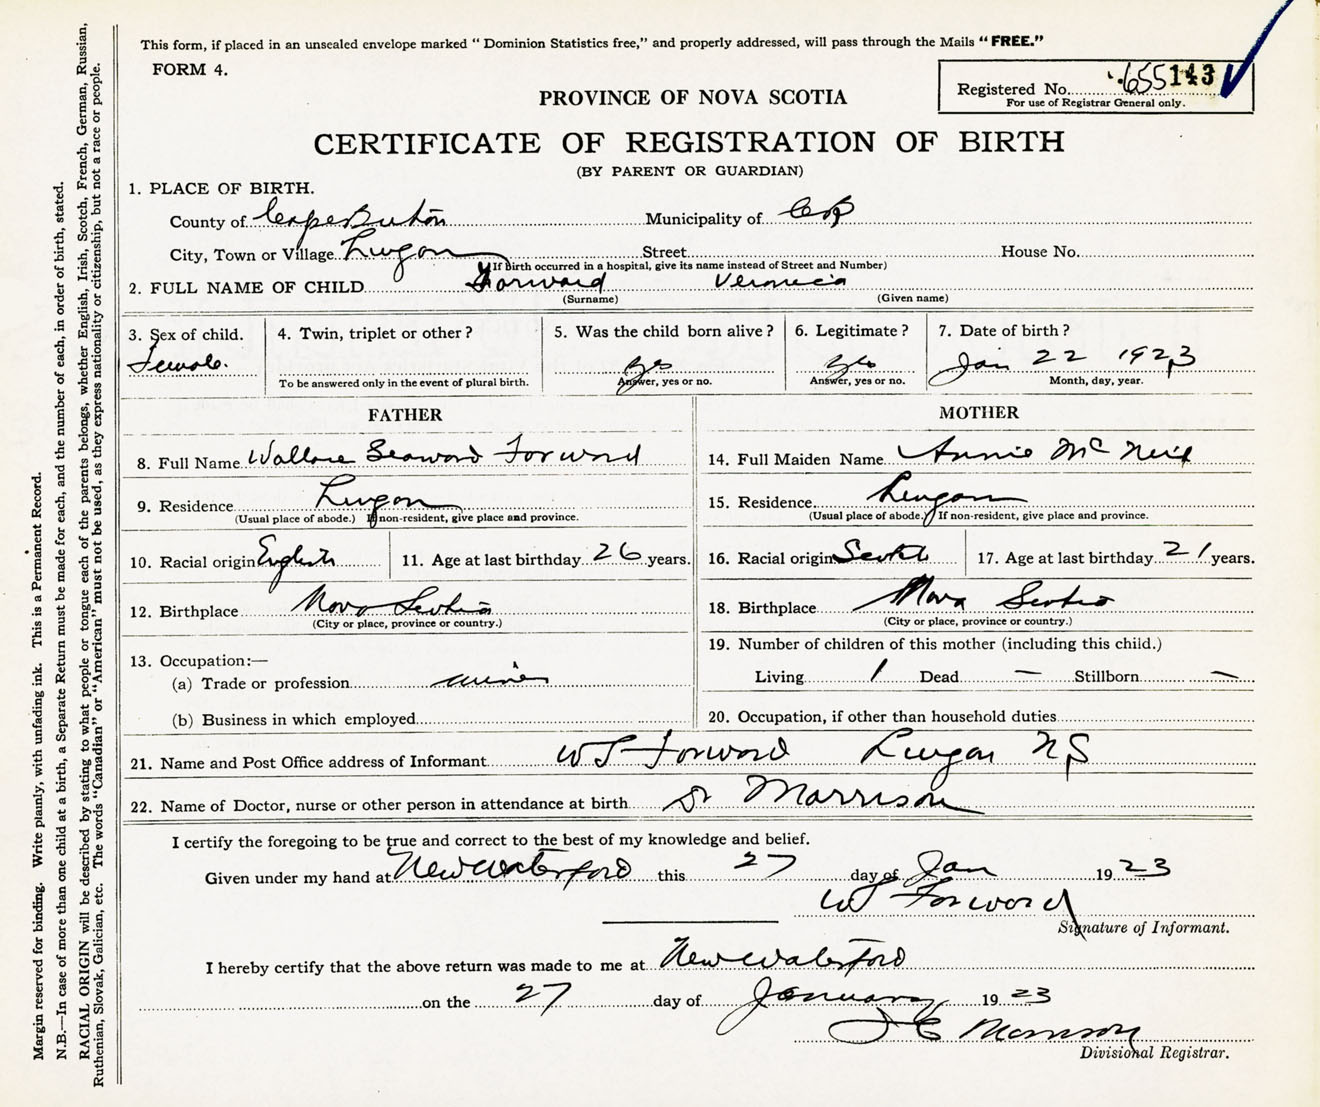 This form, if placed in an unsealed envelope marked “ Dominion Statistics free,” and properly addressed, will pass through the Mails “ FREE.”
FORM 4.
Registered No. 655143
For use of Registrar General only.
PROVINCE OF NOVA SCOTIA
CERTIFICATE OF REGISTRATION OF BIRTH
(BY PARENT OR GUARDIAN)
1. PLACE OF BIRTH.
County of Cape Breton Municipality of CB
City, Town or Village Lingan Street House No.
(If Birth occurred in a hospital, give its name instead of Street and Number)
2. FULL NAME OF CHILD Forward Veronica
(Surname) (Given name)
3. Sex of child. 4. Twin, triplet or other? 5. Was the child born alive? 6. Legitimate? 7. Date of birth?
Female. yes yes Jan 22 1923
To be answered only in the event of plural birth. Answer, yes or no. Answer, yes or no. Month, day, year.
FATHER MOTHER
8. Full Name Wallace Seaward Forward 14. Full Maiden Name Annie McNeil
9. Residence Lingan 15. Residence Lingan
(Usual place of abode.) If non-resident, give place and province. (Usual place of abode.) If non-resident, give place and province.
10. Racial origin English 11. Age at last birthday 26 years. 16. Racial origin Scotch 17. Age at last birthday 21 years.
12. Birthplace Nova Scotia 18. Birthplace Nova Scotia
(City or place, province or country.) (City or place, province or country.)
13. Occupation:— 19. Number of children of this mother (including this child.)
(a) Trade or profession miner Living 1 Dead — Stillborn —
(b) Business in which employed 20. Occupation, if other than household duties
21. Name and Post Office address of Informant WS Forward Lingan NS
22. Name of Doctor, nurse or other person in attendance at birth Dr Morrison
I certify the foregoing to be true and correct to the best of my knowledge and belief.
Given under my hand at New Waterford this 27 day of Jan 1923
WS Forward
Signature of Informant.
I hereby certify that the above return was made to me at New Waterford
on the 27 day of January 1923
Morrison
Divisional Registrar.
Margin reserved for binding. Write plainly, with unfading ink. This is a Permanent Record.
N.B.—In case of more than one child at a birth, a Separate Return must be made for each, and the number of each, in order of birth, stated.
RACIAL ORIGIN will be described by stating to what people or tongue each of the parents belongs, whether English, Irish, Scotch, French, German, Russian,
Ruthenian, Slovak, Galician, etc. The words “Canadian” or “American” must not be used, as they express nationality or citizenship, but not a race or people.